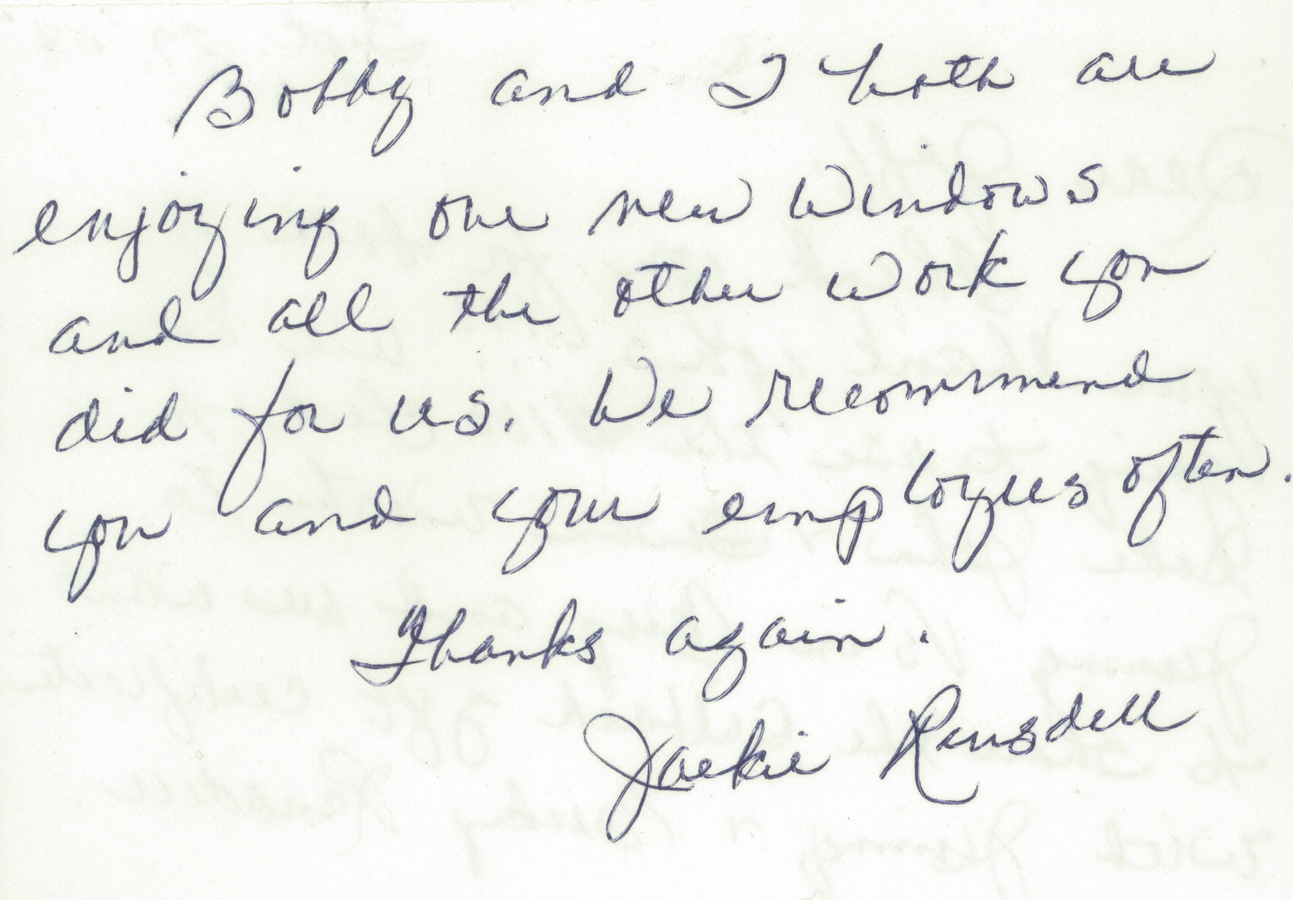 Bobby and I both are
enjoying our new windows
and all the other work you
did for us. We recommend
you and your employees often.
Thanks again.
Jackie Rinsdell